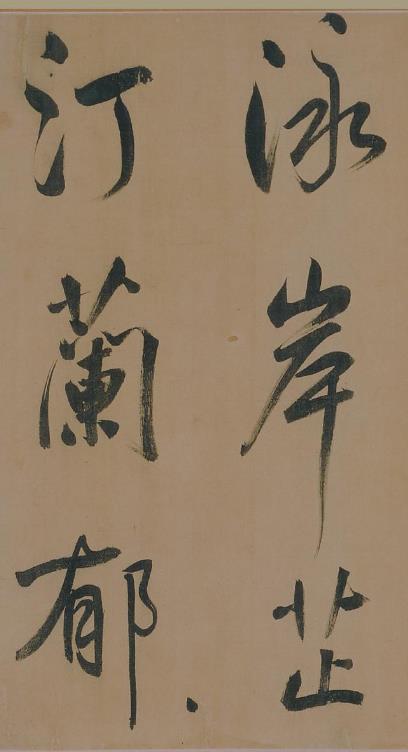 泳岸芷
汀蘭郁